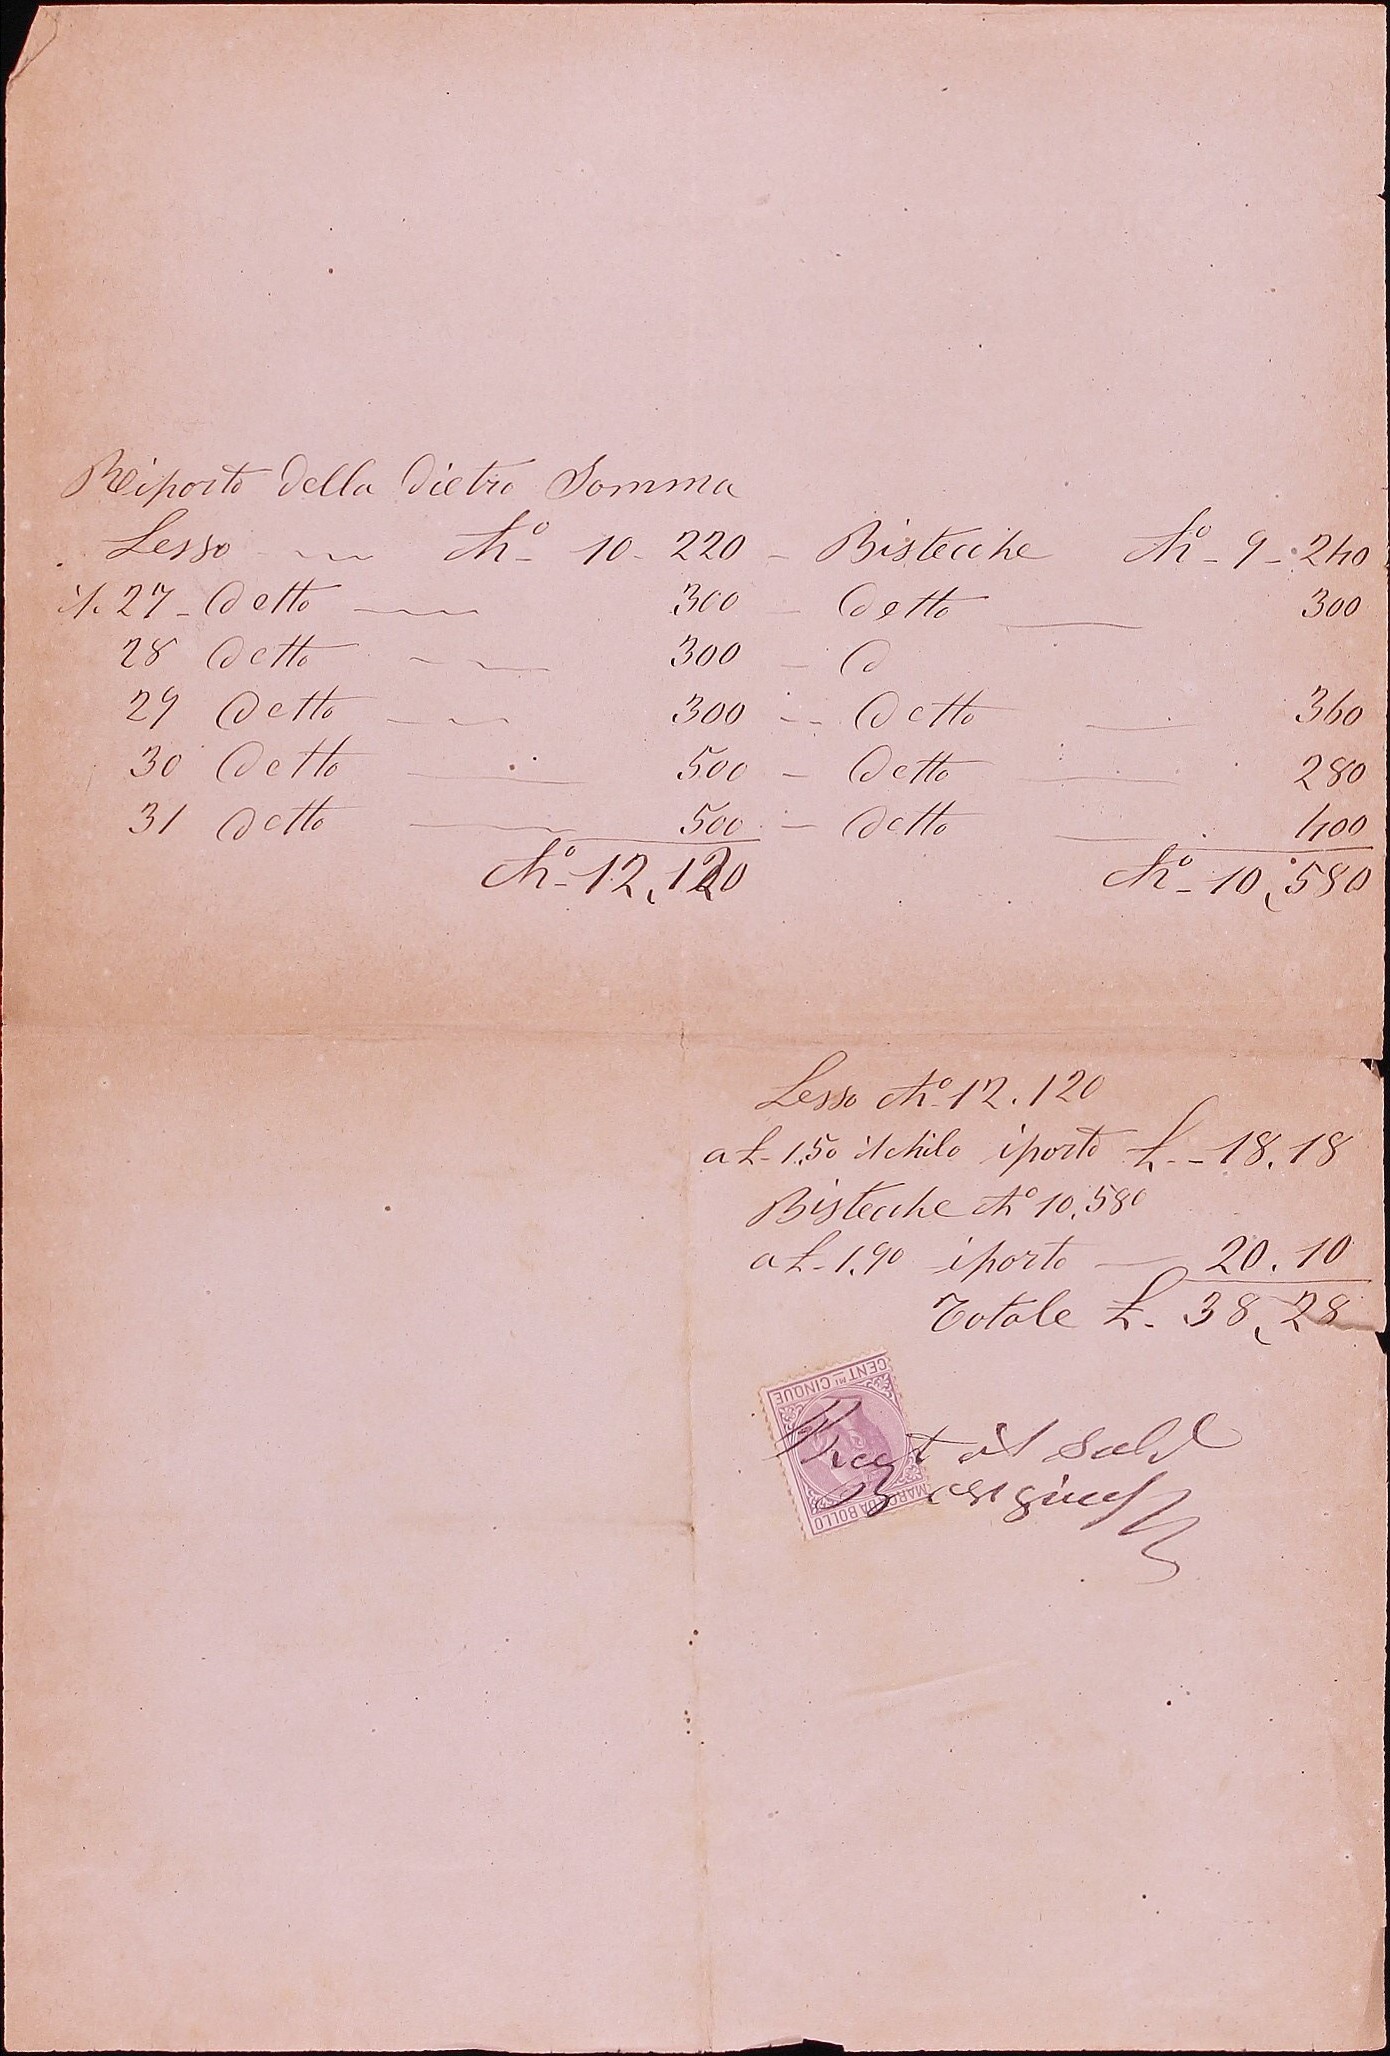 Riporto della dietro Somma
Lesso Ch.º 10 - 220 - Bistecche Ch.º - 9 - 240
il 27 - detto 300 - detto 300
28 detto 300 - d
29 detto 300 - detto 360
30 detto 500 - detto 280
31 detto 500 - detto 400
Ch.º - 12,120 Ch.º - 10,580
Lesso Ch.º 12.120
a £ - 1,50 il chilo iporto £. - 18.18
Bistecche Ch.º 10.580
a £ - 1.90 iporto - 20.10
Totale £. 38,28
CENT.MI CINQUE
MARCA DA BOLLO
il Sald